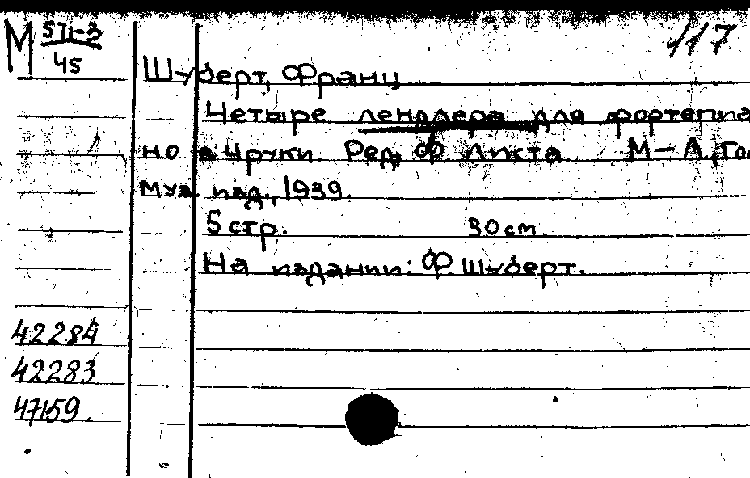 М 571-2
45
117
Шуберт, Франц
Четыре лендлера для фортепиа
но в 4 руки. Ред. Ф. Листа М-Л, Гос.
муз. изд., 1939.
5 стр. 30 см
На издании: Ф. Шуберт.
42284
42283
47159.